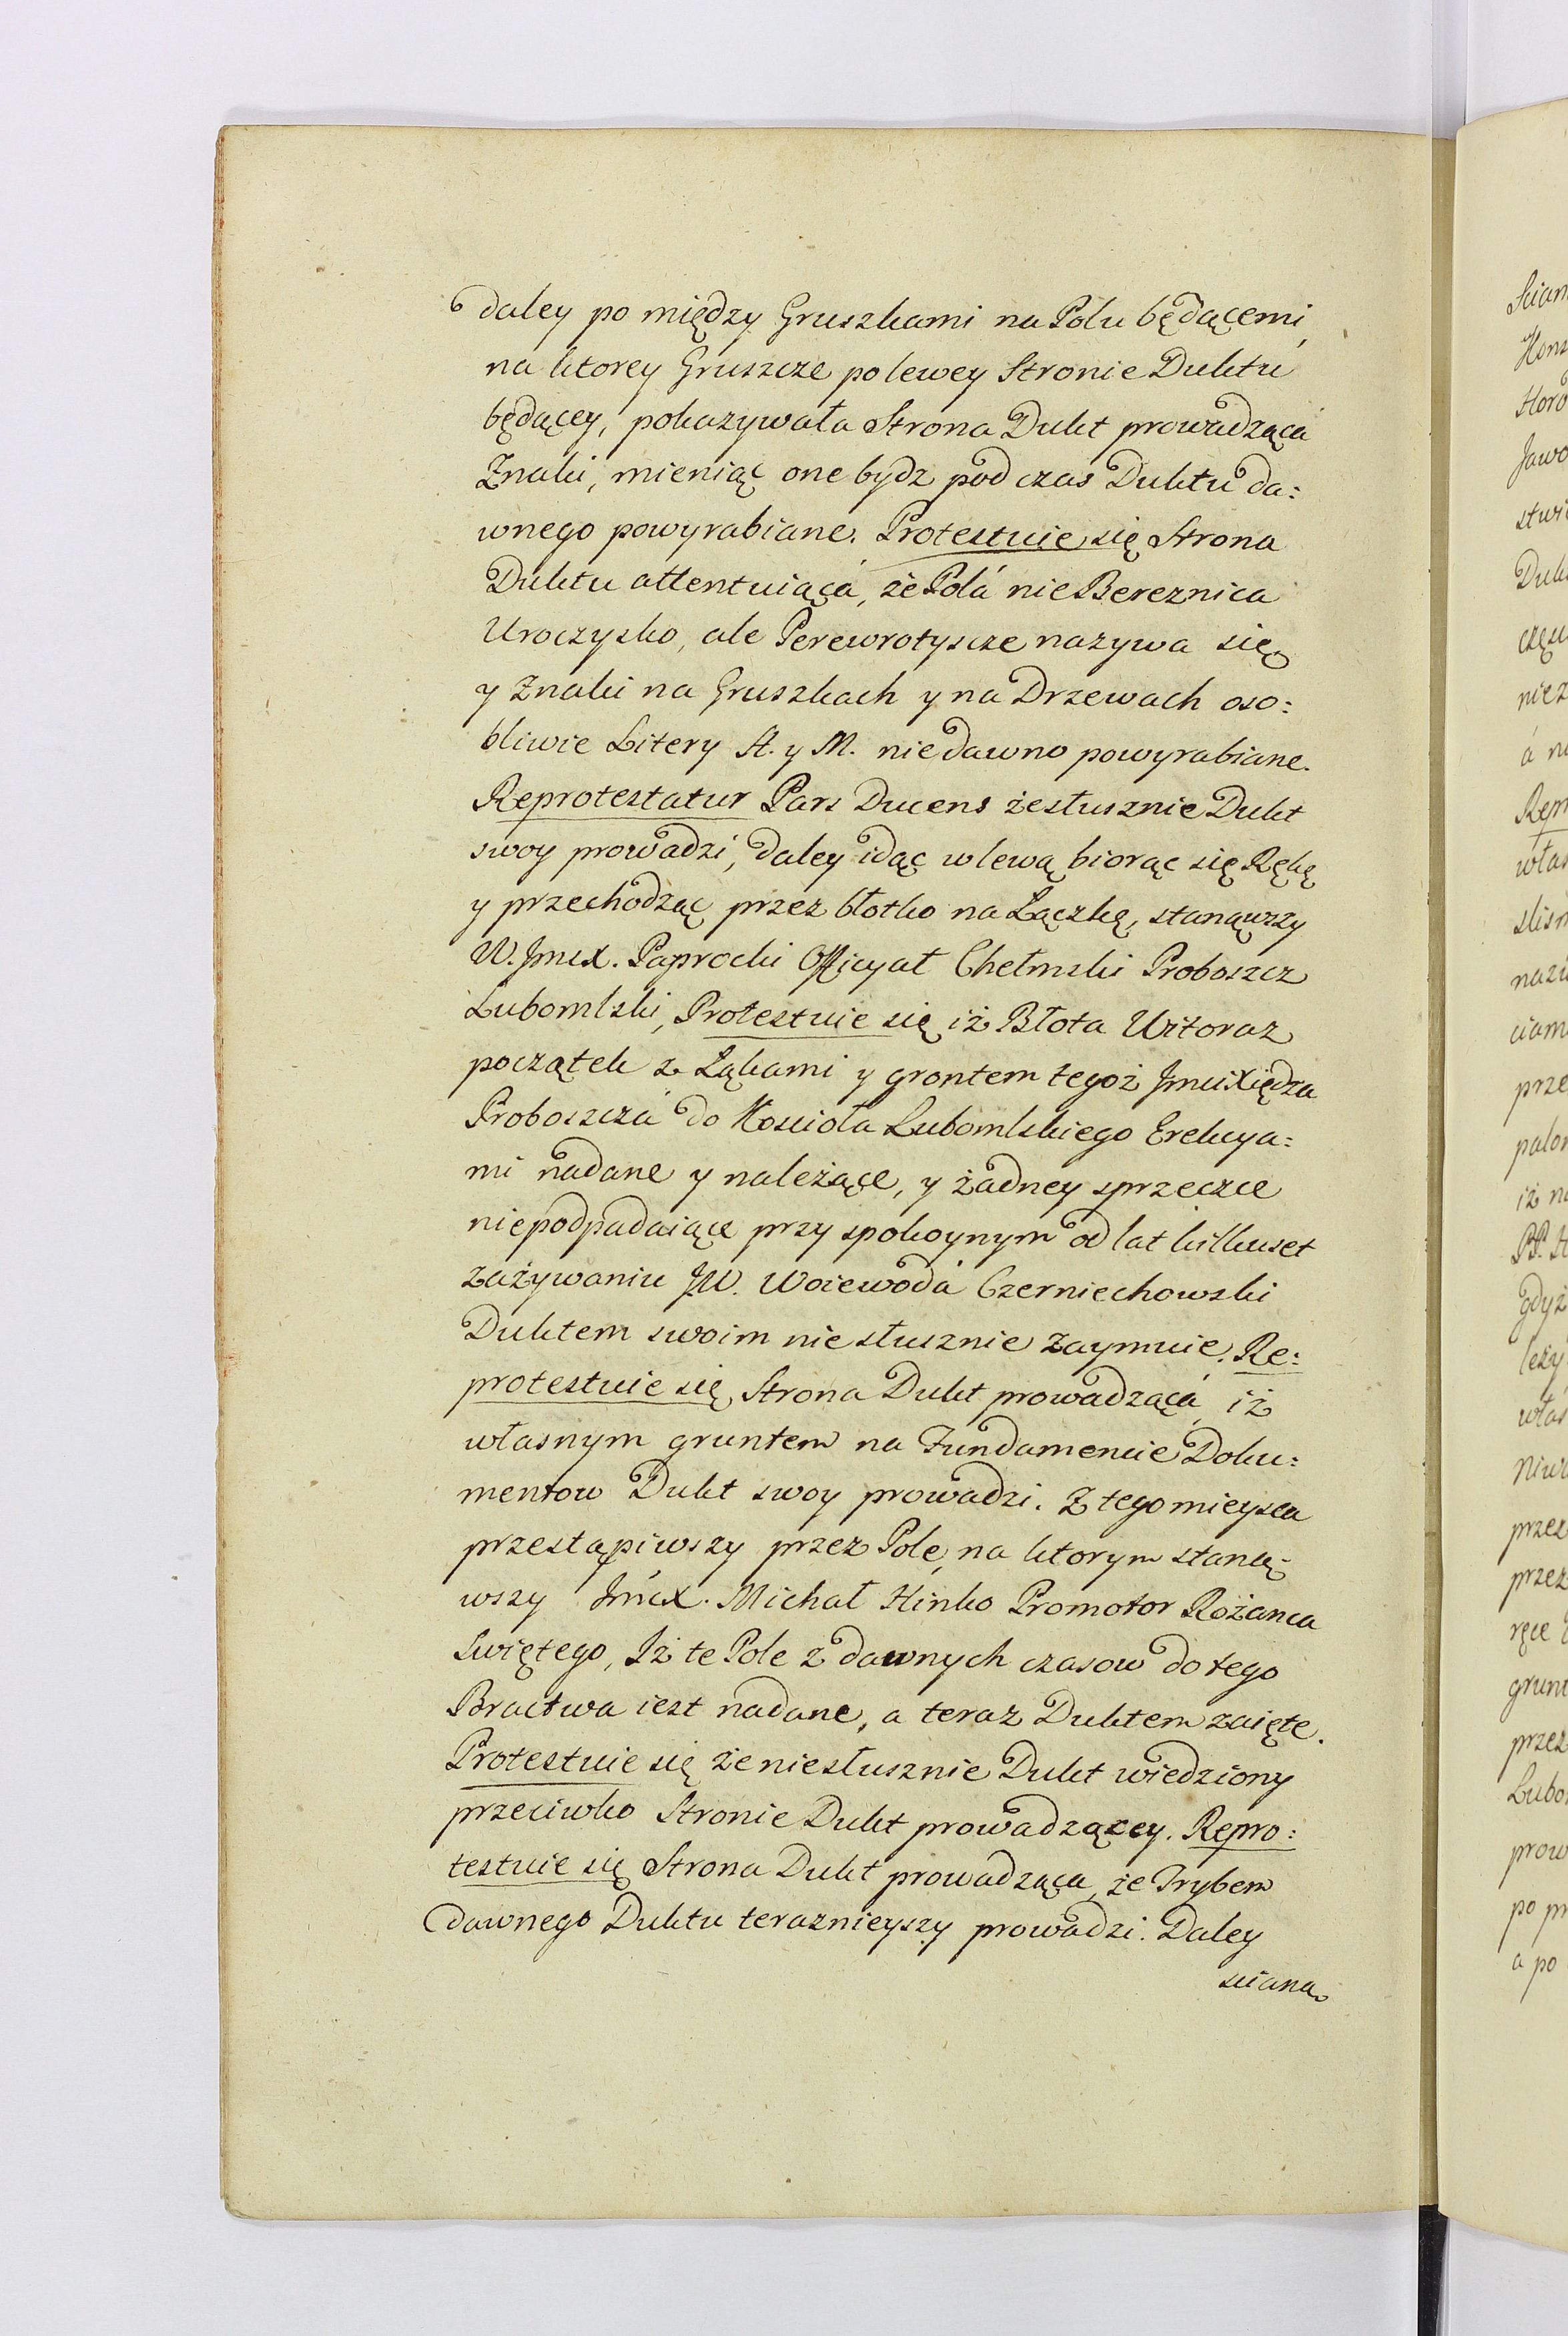 daley po między Gruszkami na Polu będącemi,
na ktorey Gruszcze po lewey Stronie Duktu
będącey, pokazywała Strona Dukt prowadząca
Znaki, mieniąc one bydz pod czas Duktu da:
wnego powyrabiane. Protestuie się Strona
Duktu attentuiąca, że Polá nie Bereznica
Uroczysko, ale Perewrotyscze nazywa się
y Znaki na Gruszkach y na Drzewach oso:
bliwie Litery A. y M. niedawno powyrabiane.
Reprotestatur Pars Ducens że słusznie Dukt
swoy prowadzi, daley idąc w lewą biorąc się Rękę
y przechodząc przez błotko na Łączkę, stanąwszy
W. Jmcx. Paprocki Officyał Chełmski Proboszcz
Lubomlski, Protestuie się iż Błota Witoraz
początek z Łąkami y grontem tegoż Jmci Xiędza
Proboszcza do Koscioła Lubomlskiego Erekcya:
mi nadane y należące, y żadney sprzeczce
niepodpadaiące przy spokoynym od lat kilkuset
zażywaniu JW. Woiewodá Czerniechowski
Duktem swoim niesłusznie zaymuie. Re:
protestuie się Strona Dukt prowadzącá, iż
własnym gruntem na Fundamencie Doku:
mentow Dukt swoy prowadzi. Z tego mieysca
przestąpiwszy przez Pole, na ktorym staną:
wszy Jmcx. Michał Hinko Promotor Rożanca
Swiętego, Iż te Pole z dawnych czasow do tego
Bractwa iest nadane, a teraz Duktem zaięte.
Protestuie się że niesłusznie Dukt wiedziony
przeciwko Stronie Dukt prowadzącey. Repro:
testuie się Strona Dukt prowadząca, że Trybem
dawnego Duktu teraznieyszy prowadzi. Daley
sciana